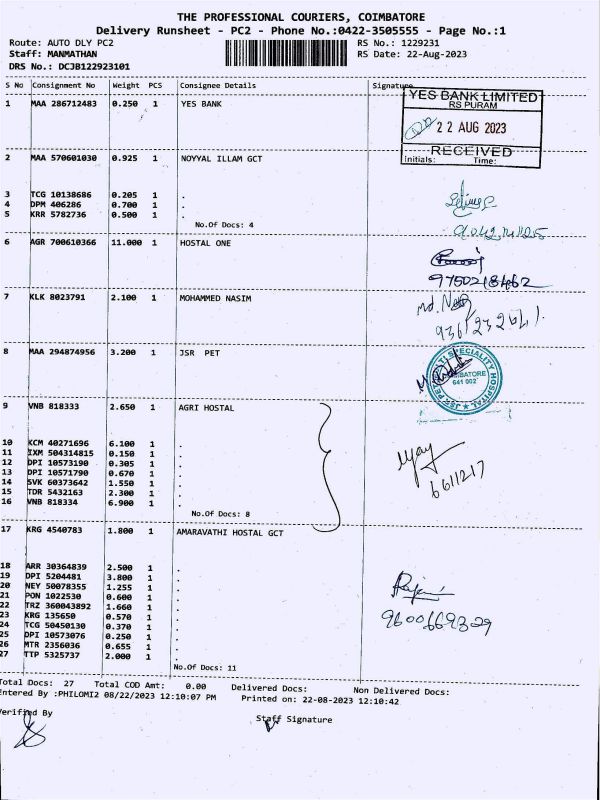 THE PROFESSIONAL COURIERS, COIMBATORE
Delivery Runsheet - PC2 - Phone No.:0422-3505555 - Page No.:1
Route: AUTO DLY PC2
RS No.: 1229231
Staff: MANMATHAN
RS Date: 22-Aug-2023
DRS No.: DCJB122923101
S No Consignment No Weight PCS Consignee Details Signature
1 MAA 286712483 0.250 1 YES BANK
YES BANK LIMITED
RS PURAM
22 AUG 2023
RECEIVED
Initials: Time:
2 MAA 570601030 0.925 1 NOYYAL ILLAM GCT
3 TCG 10138686 0.205 1 .
4 DPM 406286 0.700 1 .
5 KRR 5782736 0.500 1 .
No.Of Docs: 4
6 AGR 700610366 11.000 1 HOSTAL ONE
9750218462
7 KLK 8023791 2.100 1 MOHAMMED NASIM
8 MAA 294874956 3.200 1 JSR PET
SPECIALITY HOSPITAL
641 002
9 VNB 818333 2.650 1 AGRI HOSTAL
10 KCM 40271696 6.100 1 .
11 IXM 504314815 0.150 1 .
12 DPI 10573190 0.305 1 .
13 DPI 10571790 0.670 1 .
14 SVK 60373642 1.550 1 .
15 TDR 5432163 2.300 1 .
16 VNB 818334 6.900 1 .
6611217
No.Of Docs: 8
17 KRG 4540783 1.800 1 AMARAVATHI HOSTAL GCT
18 ARR 30364839 2.500 1 .
19 DPI 5204481 3.800 1 .
20 NEY 50078355 1.255 1 .
21 PON 1022530 0.600 1 .
22 TRZ 360043892 1.660 1 .
23 KRG 135650 0.570 1 .
24 TCG 50450130 0.370 1 .
25 DPI 10573076 0.250 1 .
26 MTR 2356036 0.655 1 .
27 TTP 5325737 2.000 1 .
9600669329
No.Of Docs: 11
Total Docs: 27 Total COD Amt: 0.00 Delivered Docs: Non Delivered Docs:
Entered By :PHILOMI2 08/22/2023 12:10:07 PM Printed on: 22-08-2023 12:10:42
Verified By
Staff Signature